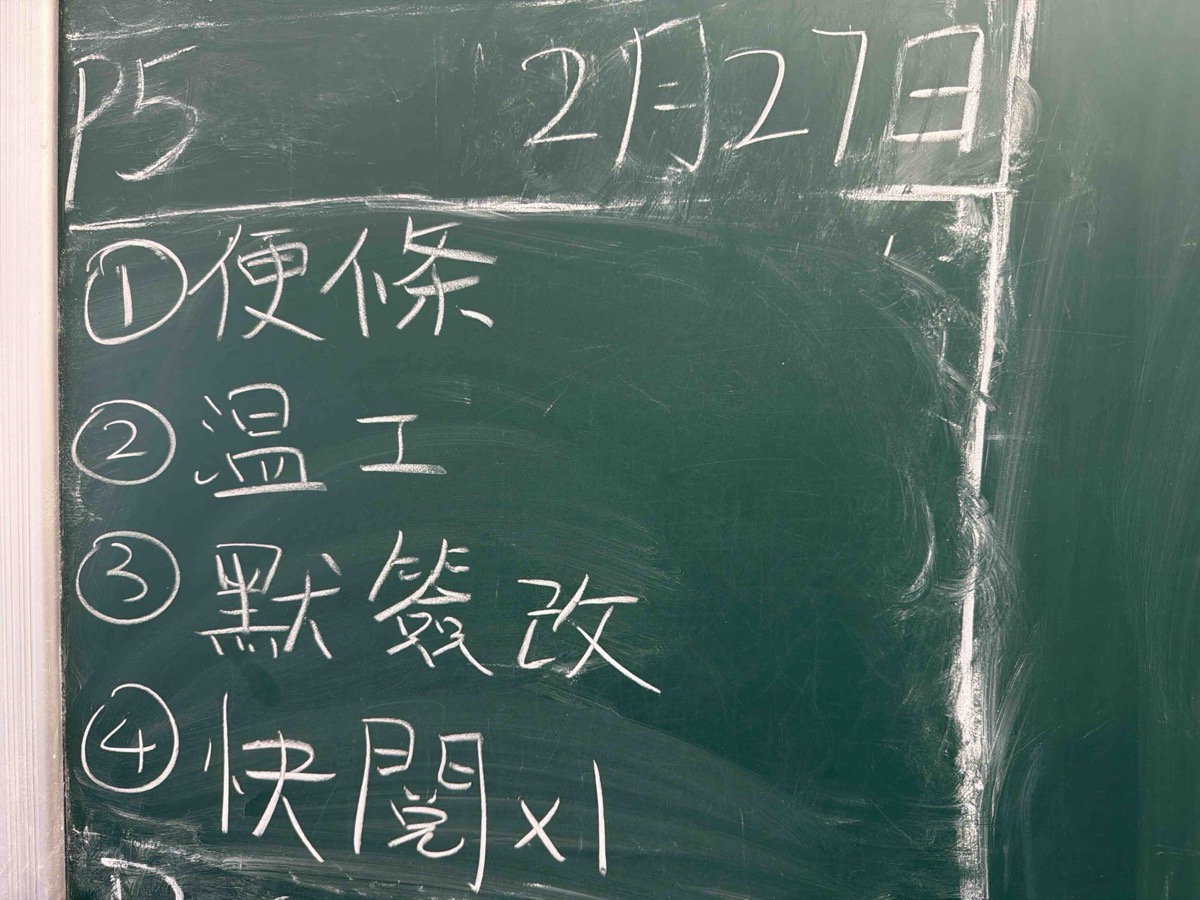 P5 2月27日
①便條
②温工
③默簽改
④快閱x1